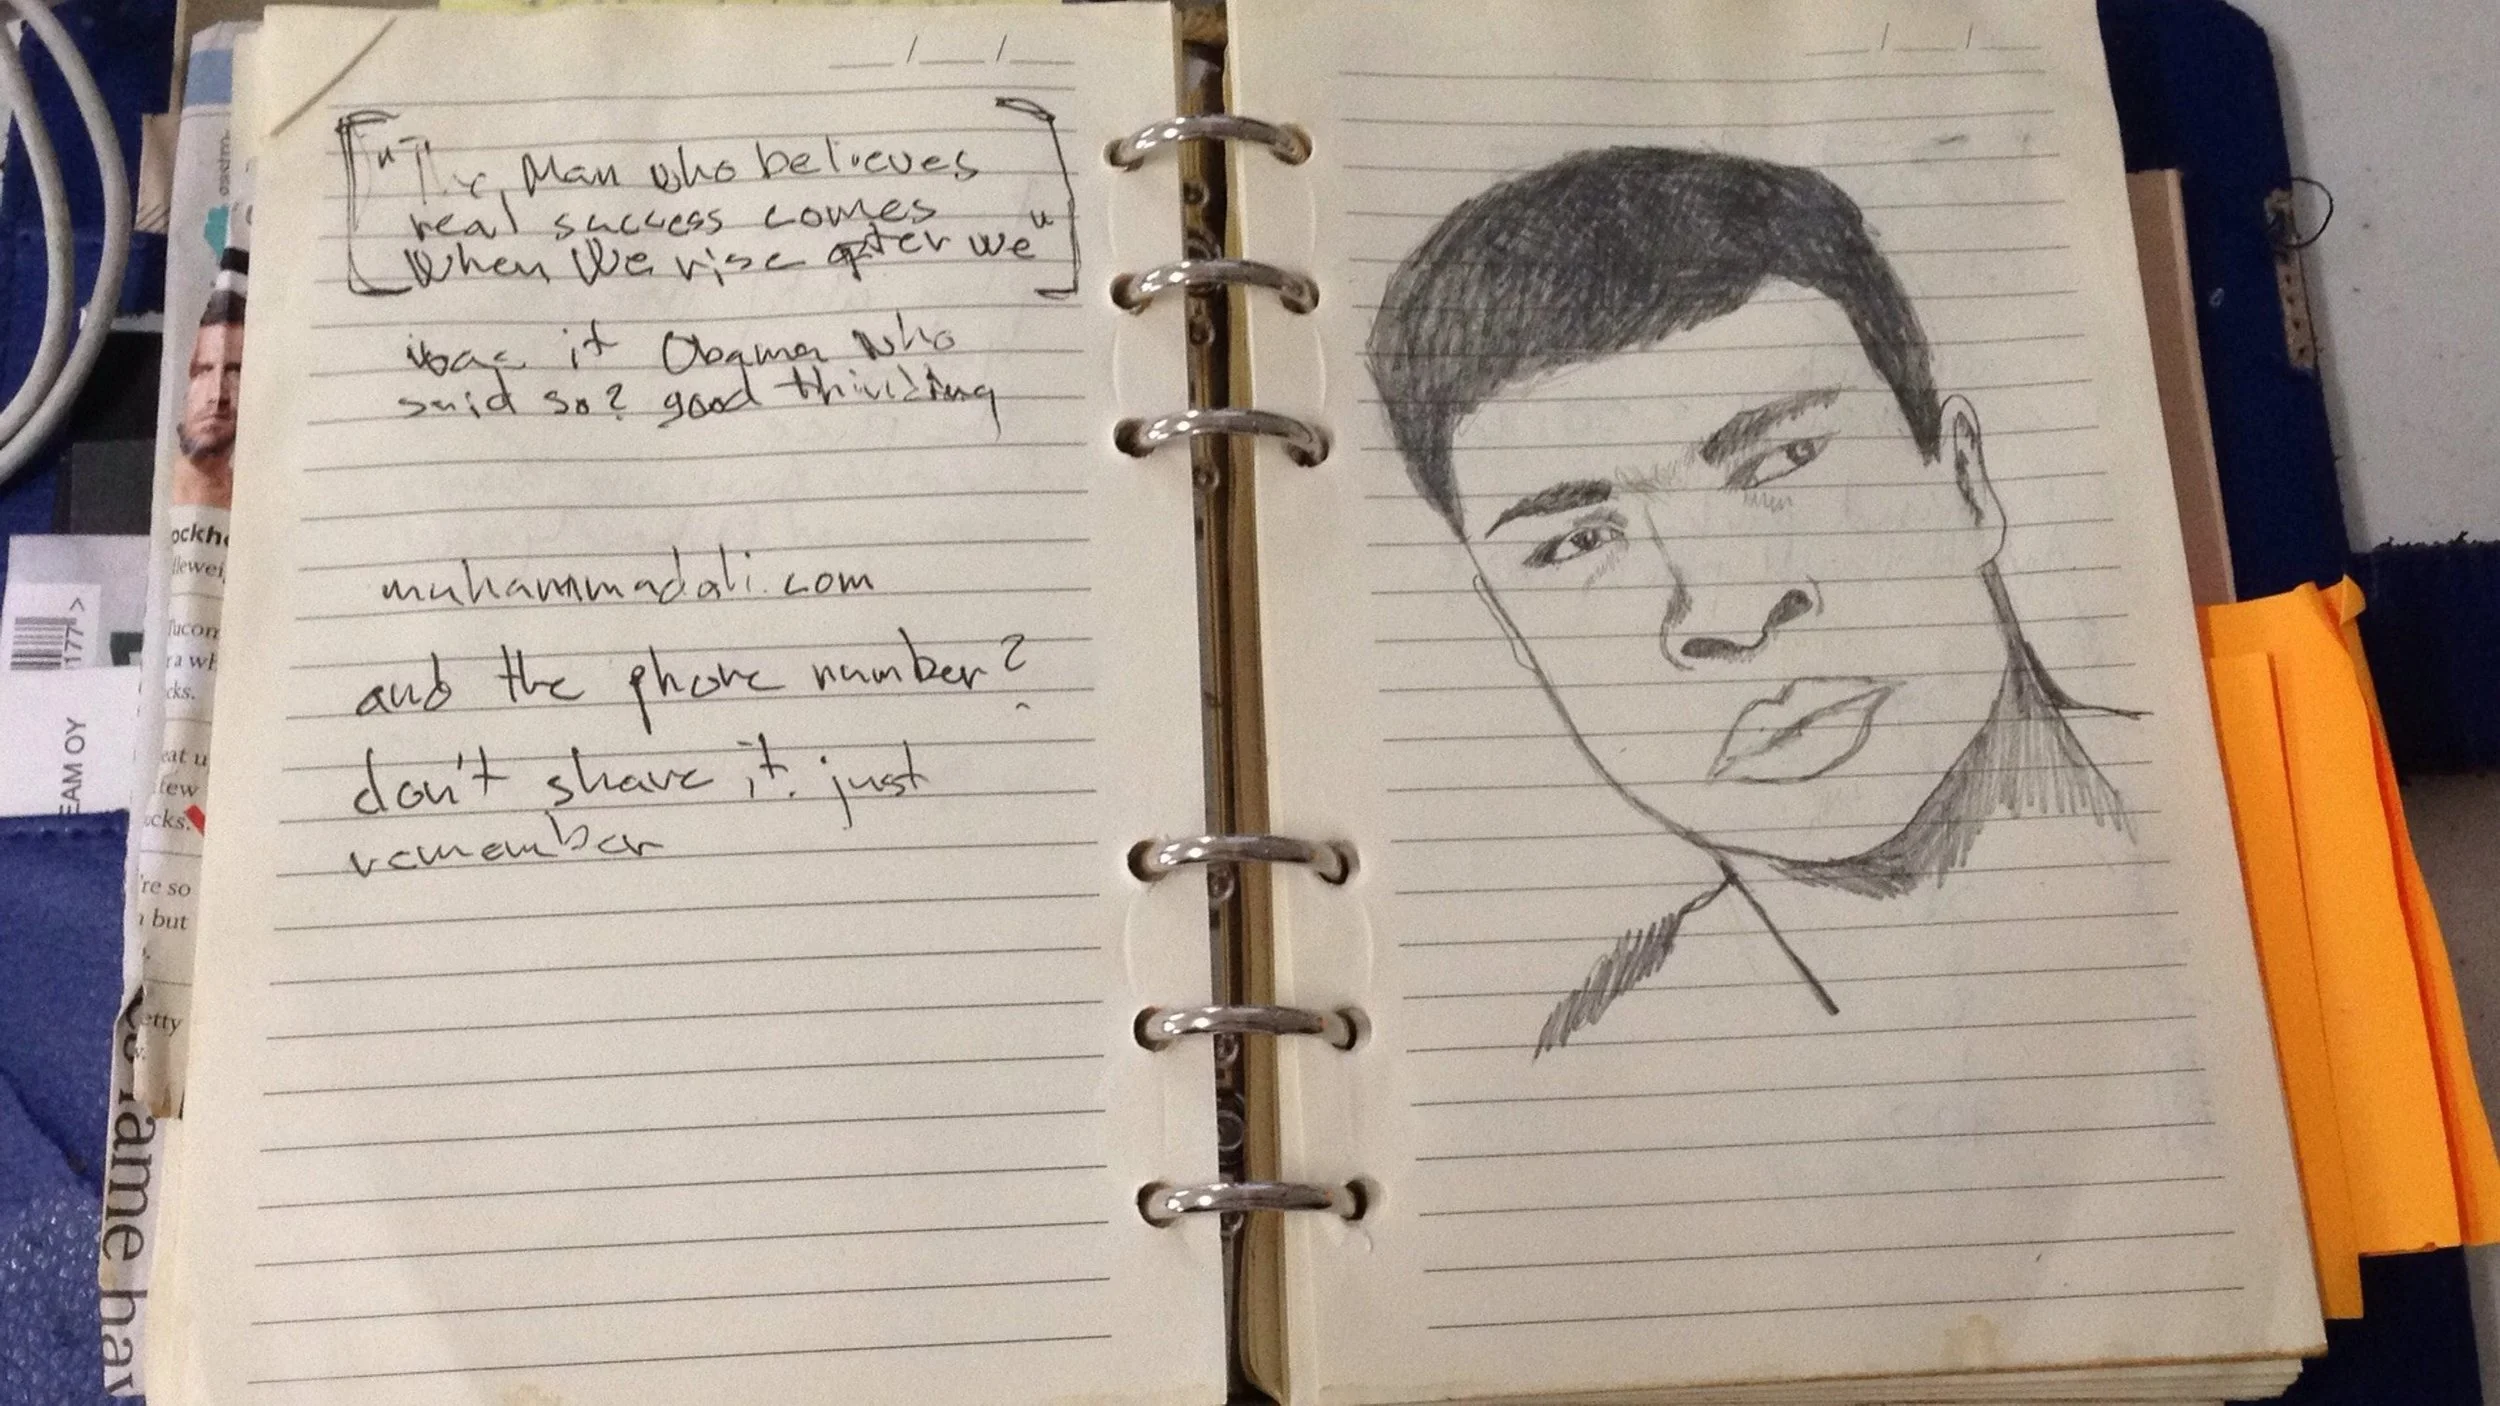 "The Man who believes
real success comes
when we rise after we"
was it Obama who
said so? good thinking
muhammadali.com
and the phone number?
don't share it. just
remember
ockh
lleweig
Tucom
ra wh
cks.
eat u
few
cks.
're so
but
etty
ame hav
177>
EAM OY